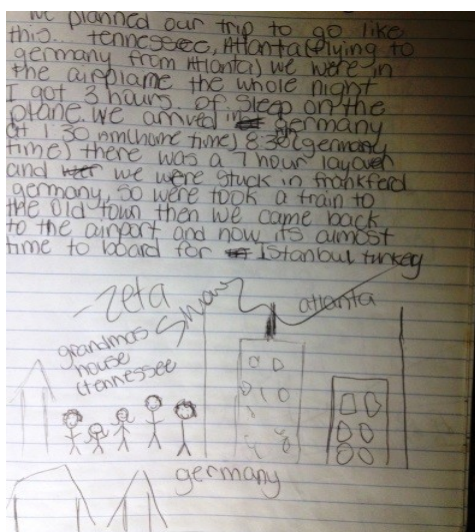 we planned our trip to go like
this. tennessee, Atlanta (flying to
germany from Atlanta) we were in
the airplame the whole night
I got 3 hours of sleep on the
plane. we arrived in germany
at 1:30 Am (home time) 8:30 (germany
time) there was a 7 hour layover
and we were stuck in frankferd
germany, so were took a train to
the old town then we came back
to the airport and now its almost
time to board for Istanbul turkey
-zeta
atlanta
grandmas
house
(tennessee
germany